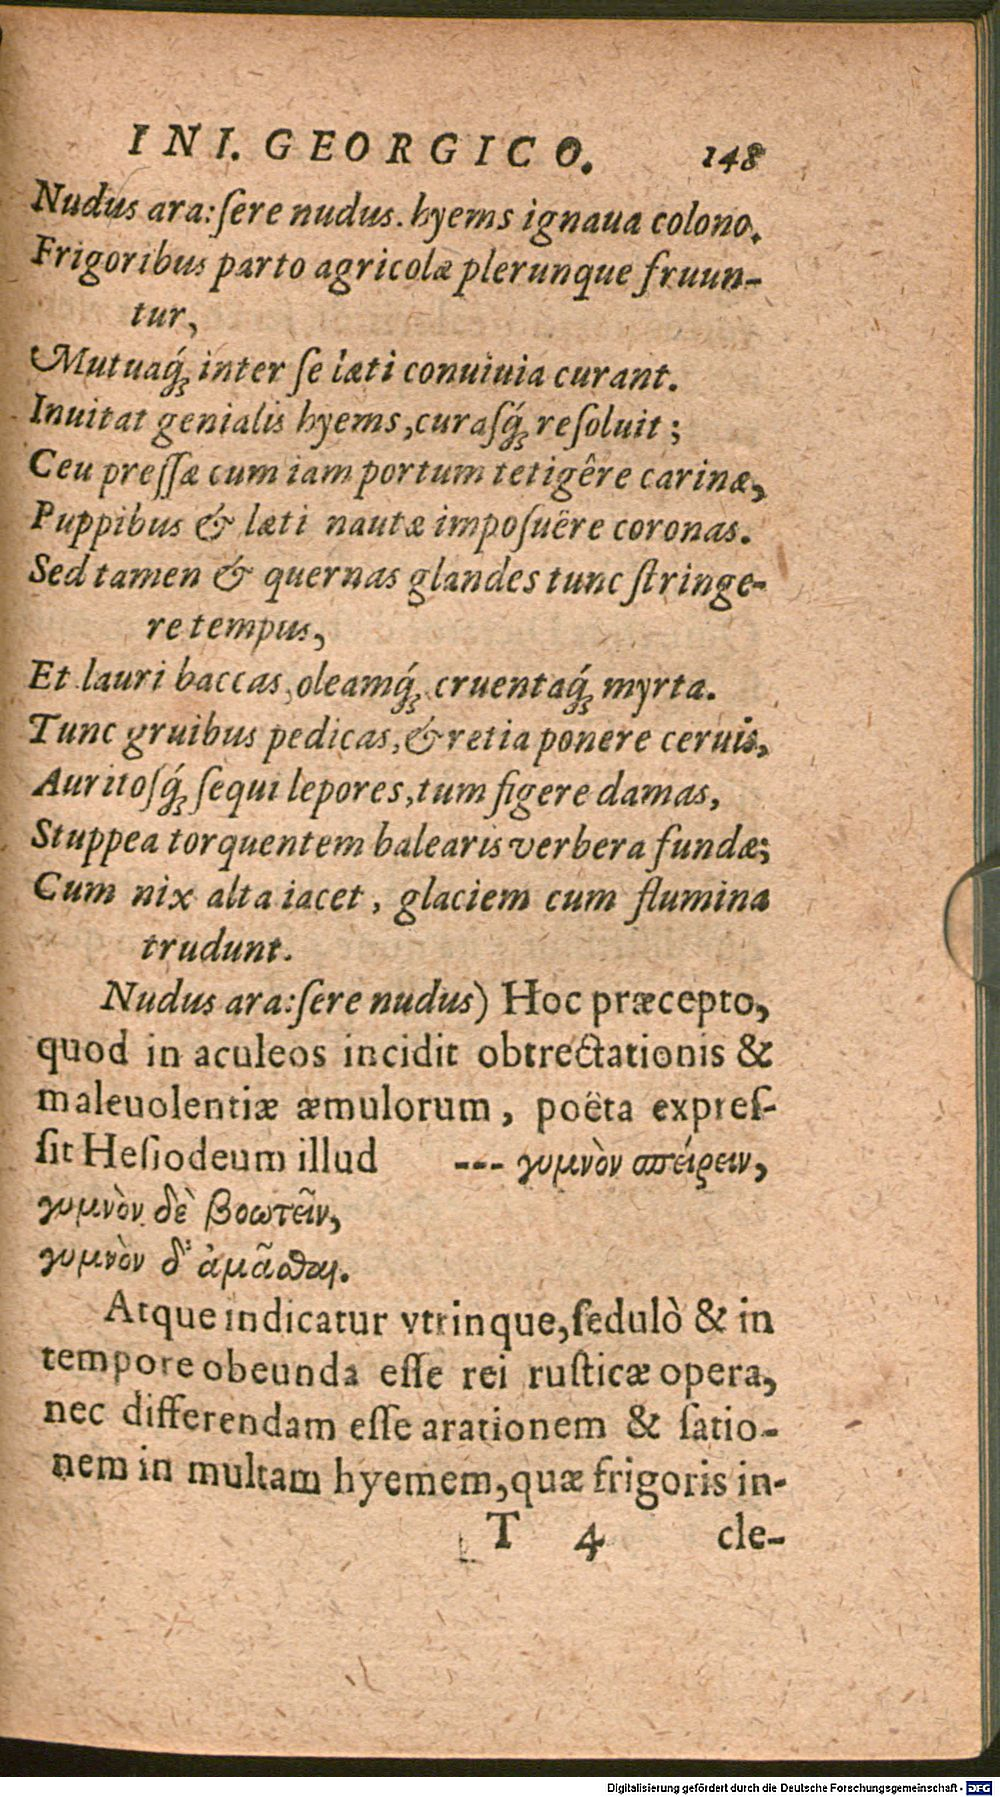 IN I. GEORGICO. 148
Nudus ara: ſere nudus. hyems ignaua colono.
Frigoribus parto agricolæ plerunque fruun-
tur,
Mutuaq́ʒ inter ſe læti conuiuia curant.
Inuitat genialis hyems, curaſq́ʒ reſoluit;
Ceu preſſæ cum iam portum tetigêre carinæ,
Puppibus & læti nautæ impoſuêre coronas.
Sed tamen & quernas glandes tunc ſtringe-
re tempus,
Et lauri baccas, oleamq́ʒ cruentaq́ʒ myrta.
Tunc gruibus pedicas, & retia ponere ceruis,
Auritoſq́ʒ ſequi lepores, tum figere damas,
Stuppea torquentem balearis verbera fundæ;
Cum nix alta iacet, glaciem cum flumina
trudunt.
Nudus ara: ſere nudus) Hoc præcepto,
quod in aculeos incidit obtrectationis &
maleuolentiæ æmulorum, poëta expreſ-
ſit Heſiodeum illud --- γυμνὸν σπείρειν,
γυμνὸν δὲ βοωτεῖν,
γυμνὸν δ' ἀμᾶσθαι.
Atque indicatur vtrinque, ſedulò & in
tempore obeunda eſſe rei ruſticæ opera,
nec differendam eſſe arationem & ſatio-
nem in multam hyemem, quæ frigoris in-
T 4 cle-
Digitalisierung gefördert durch die Deutsche Forschungsgemeinschaft - DFG